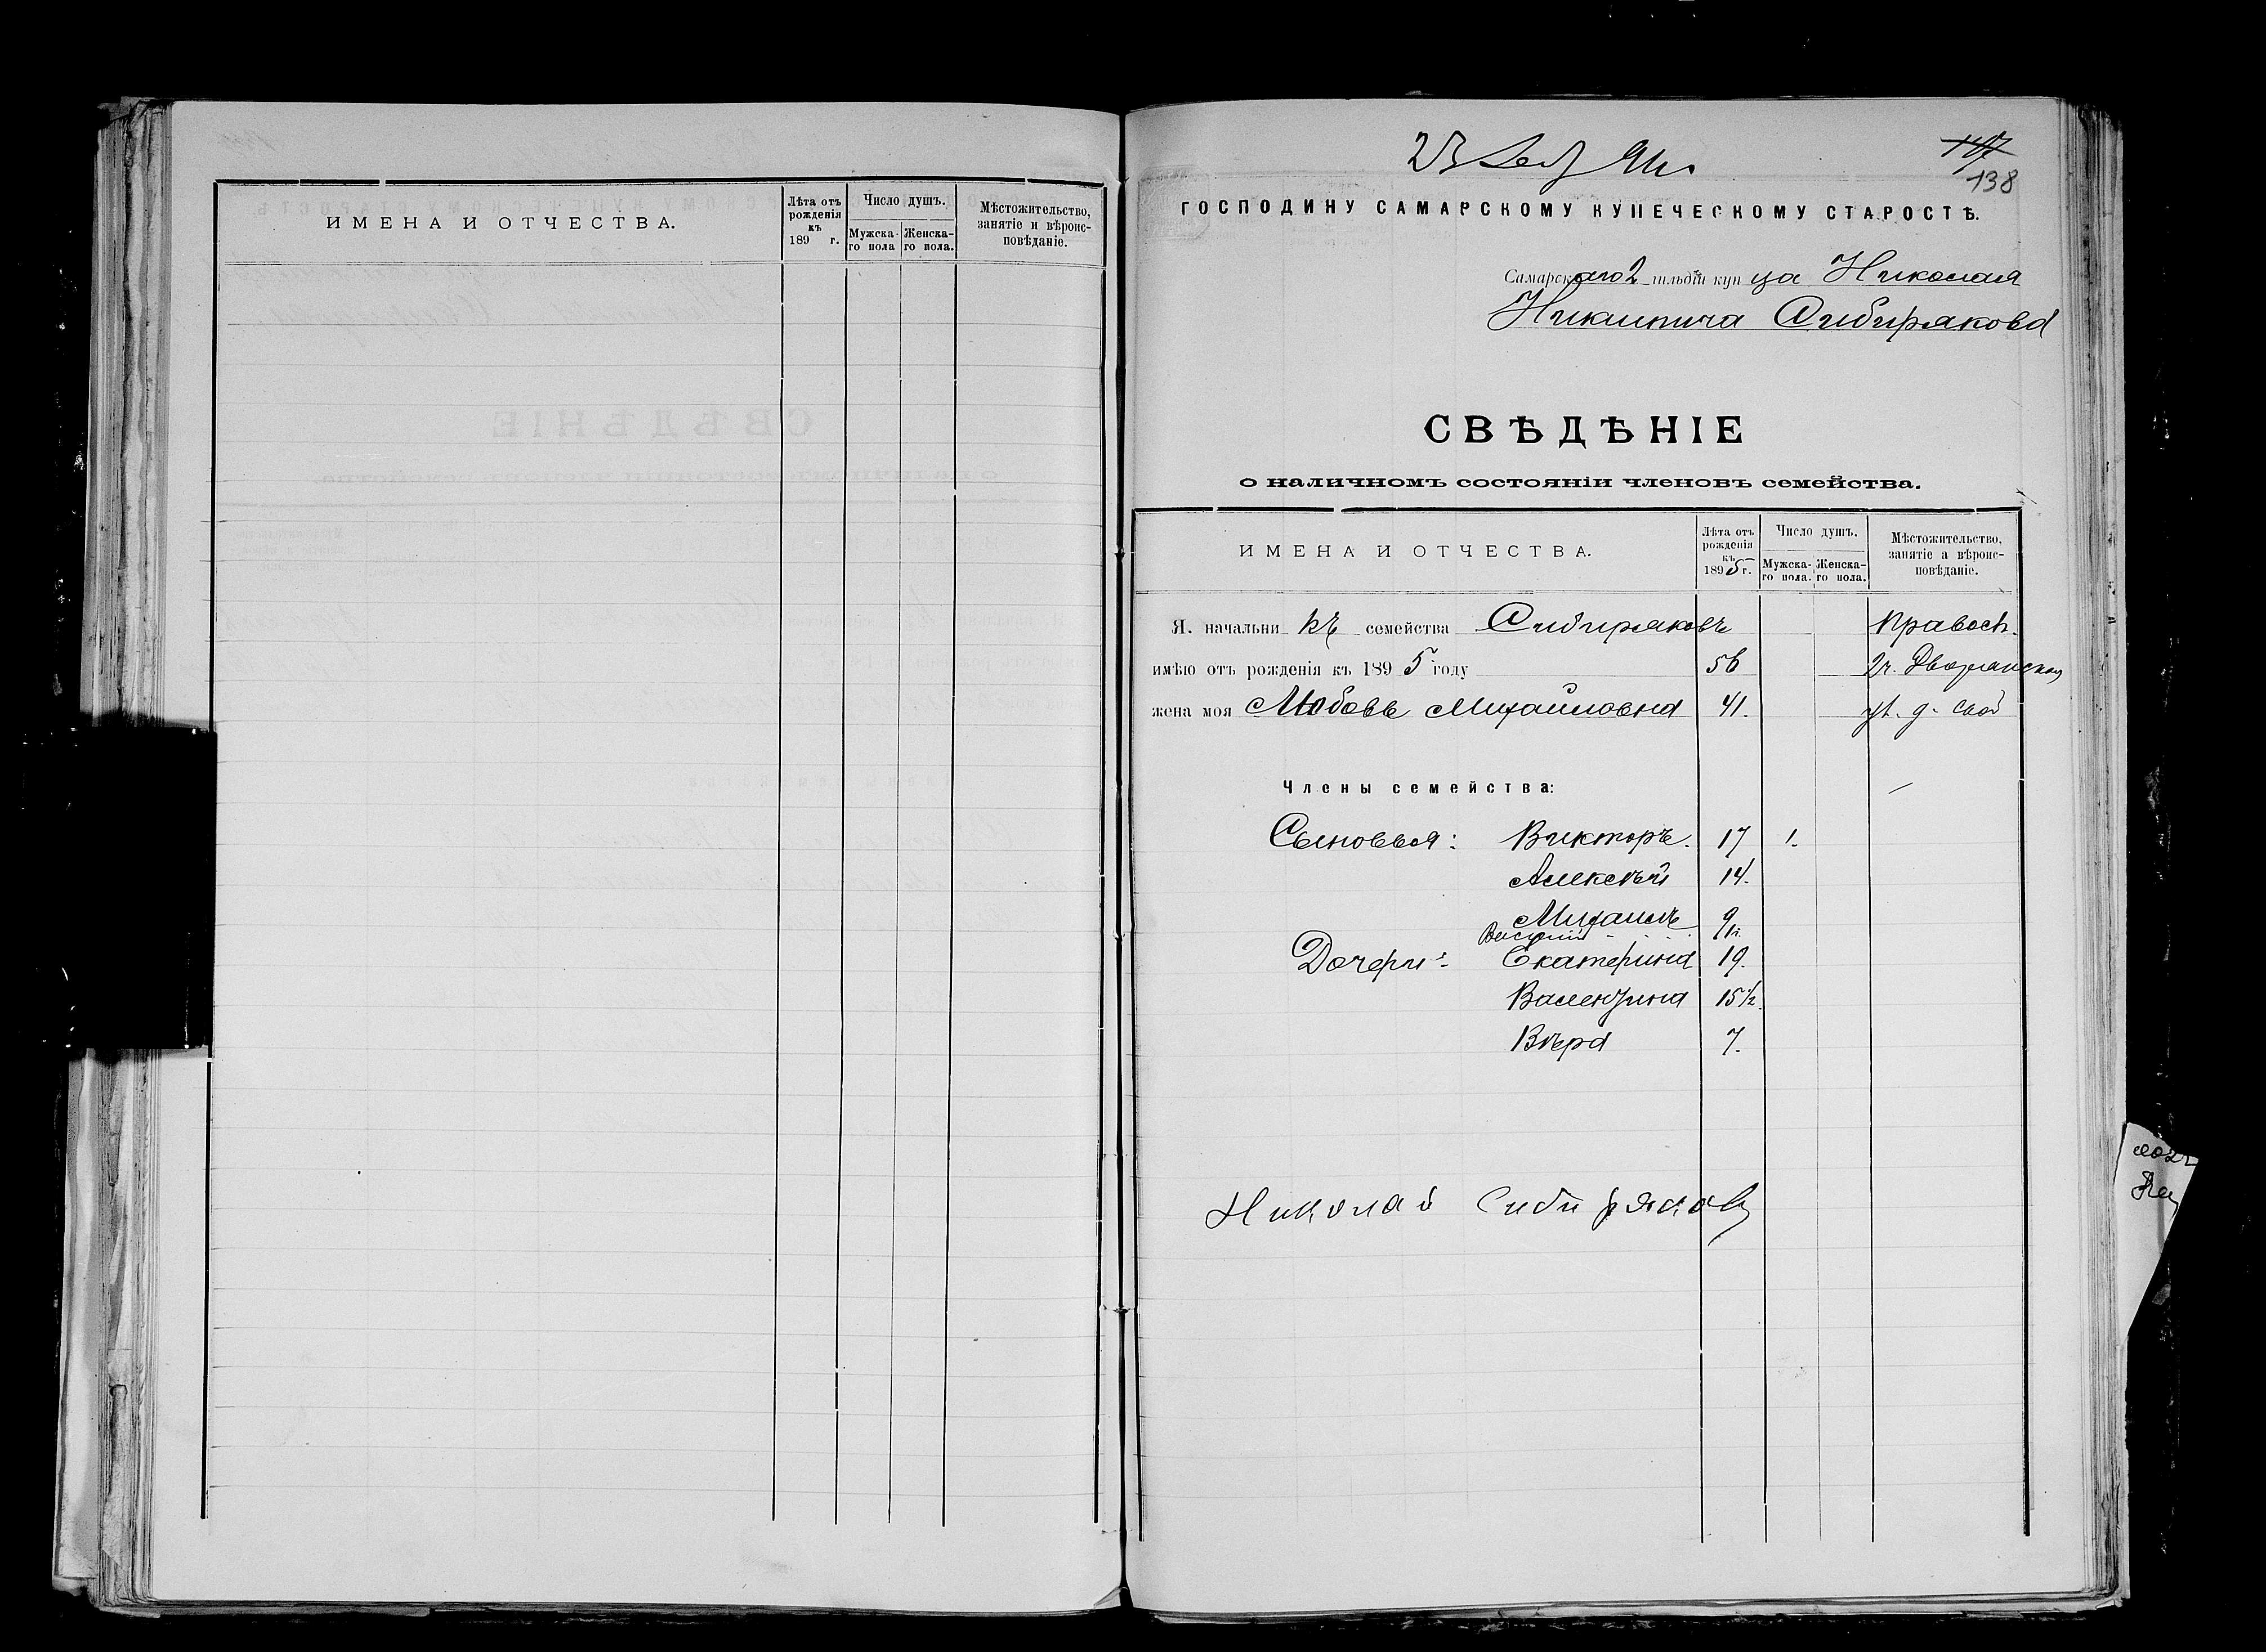 ИМЕНА И ОТЧЕСТВА.
Лѣта отъ рожденія къ 189 г.
Число душъ.
Мужска-го пола
Женска-го пола.
Мѣстожительство, занятіе и вѣроис-повѣданіе.
138
ГОСПОДИНУ САМАРСКОМУ КУПЕЧЕСКОМУ СТАРОСТѢ.
Самарскаго 2 гильдіи купца Николая
Никитича Сибирякова
СВѢДѢНІЕ
о наличномъ состояніи членовъ семейства.
ИМЕНА И ОТЧЕСТВА.
Лѣта отъ рожденія къ 1895 г.
Число душъ.
Мужска-го пола.
Женска-го пола.
Мѣстожительство, занятіе а вѣроис-повѣданіе.
Я. начальникъ семейства Сибиряковъ Правосл.
имѣю отъ рожденія къ 1895 году 56 2ч. Дворянская
жена моя Любовь Михайловна 41. ул. д. свой
Члены семейства:
Сыновья: Викторъ. 17 1.
Алексѣй 14.
Михаилъ 9
Василій
Дочери: Екатерина 19.
Валентина 15 1/2
Вѣра 7.
Николай Сибиряковъ